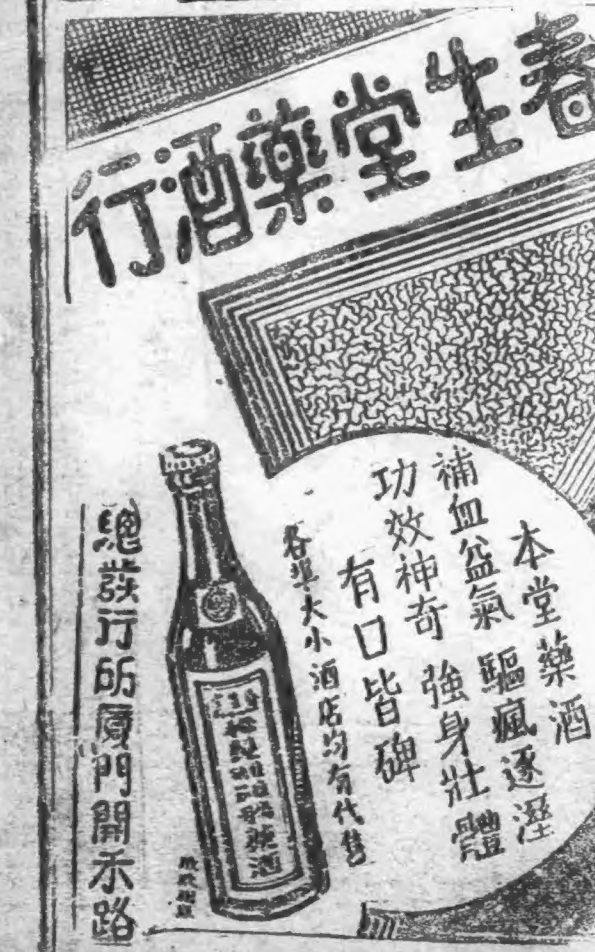 春生堂藥酒行
本堂藥酒
補血益氣 驅瘋逐溼
功效神奇 強身壯體
有口皆碑
各埠大小酒店均有代售
總發行所厦門開禾路